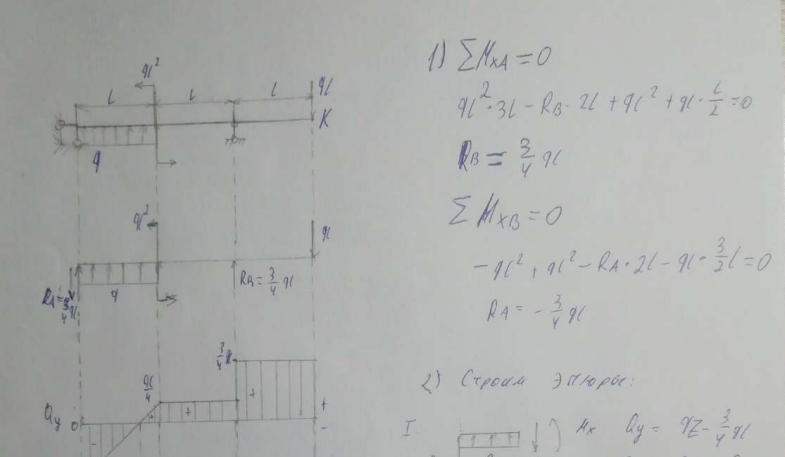 ql²
l l l ql
K
q
ql² ql
RA=3/4 ql q RB=3/4 ql
ql/4 3/4
Qy 0 - + + + + -
1) ΣMxA=0
ql²·3l - RB·2l + ql² + ql·l/2=0
RB=3/4 ql
ΣMxB=0
-ql²+ql²-RA·2l-ql·3/2l=0
RA=-3/4 ql
2) Строим эпюры:
I Mx Qy= qz-3/4 ql